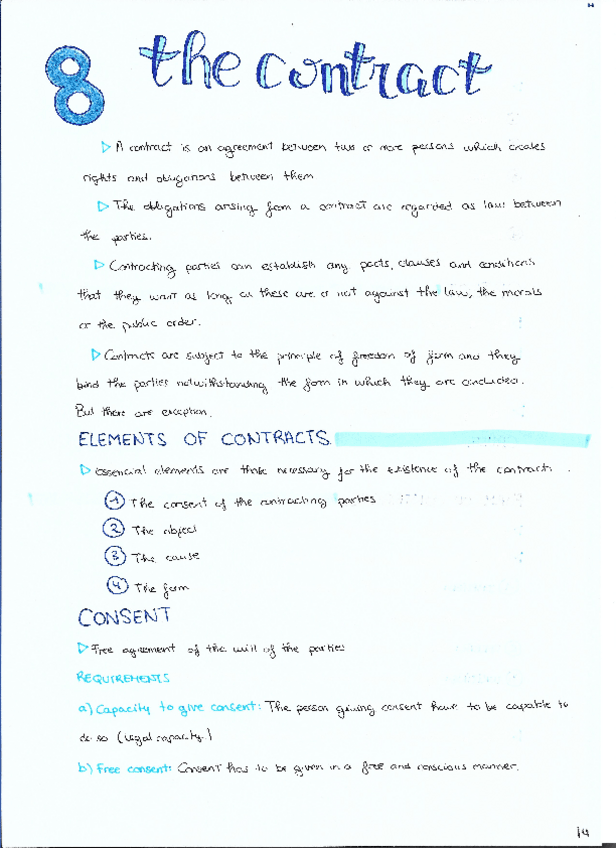 8 the contract
▷ A contract is an agreement between two or more persons which creates
rights and obligations between them
▷ The obligations arising from a contract are regarded as law between
the parties.
▷ Contracting parties can establish any pacts, clauses and conditions
that they want as long as these are not against the law, the morals
or the public order.
▷ Contracts are subject to the principle of freedom of form and they
bind the parties notwithstanding the form in which they are concluded.
But there are exception.
ELEMENTS OF CONTRACTS
▷ essencial elements are those necessary for the existence of the contract.
1 The consent of the contracting parties
2 The object
3 The cause
4 The form
CONSENT
▷ Free agreement of the will of the parties
REQUIREMENTS
a) Capacity to give consent: The person giving consent have to be capable to
do so (legal capacity)
b) Free consent: Consent has to be given in a free and conscious manner.
14